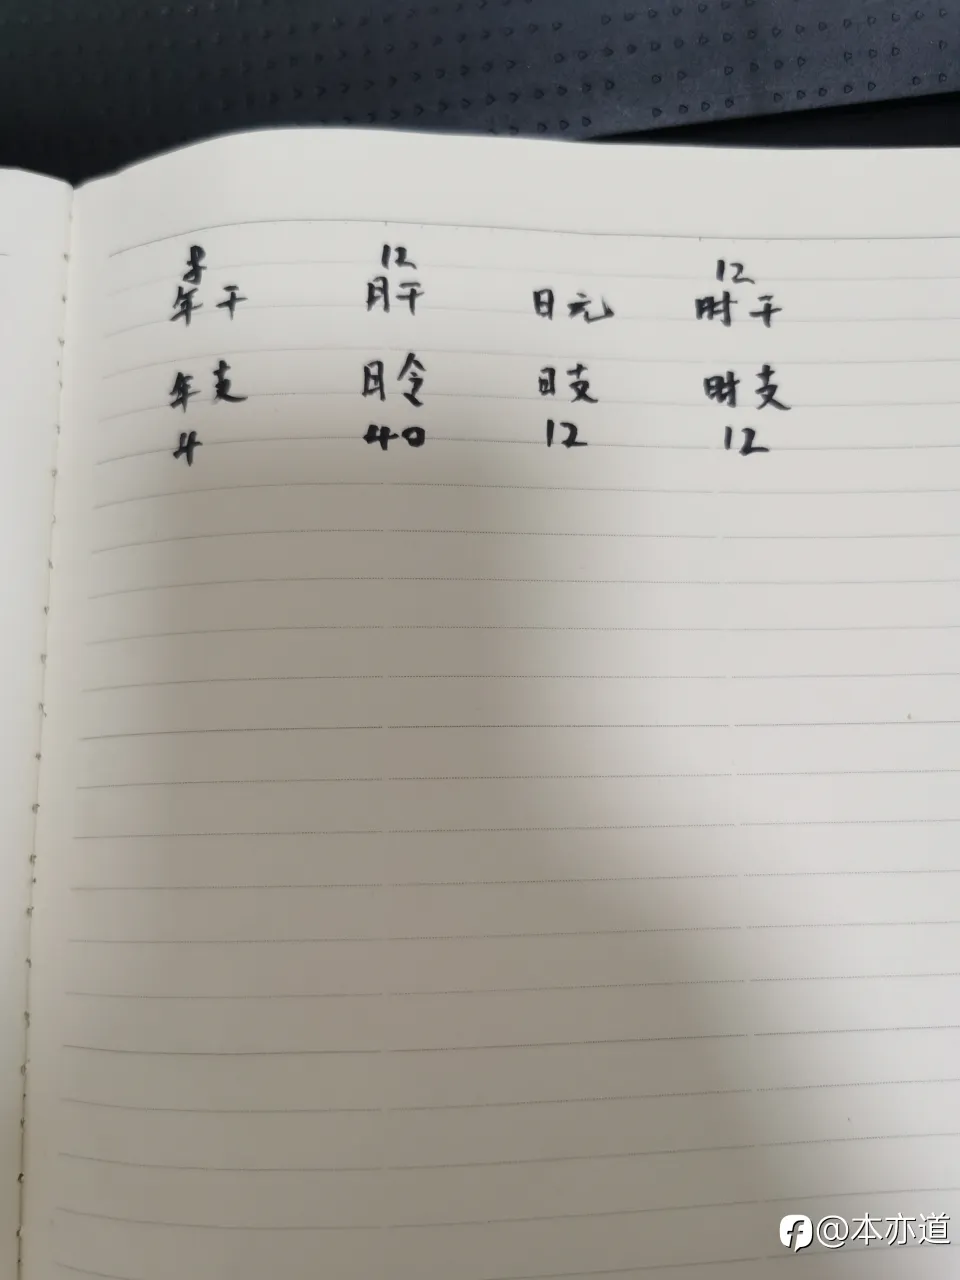 8 12 12
年干 月干 日元 时干
年支 月令 日支 时支
4 40 12 12
@本亦道